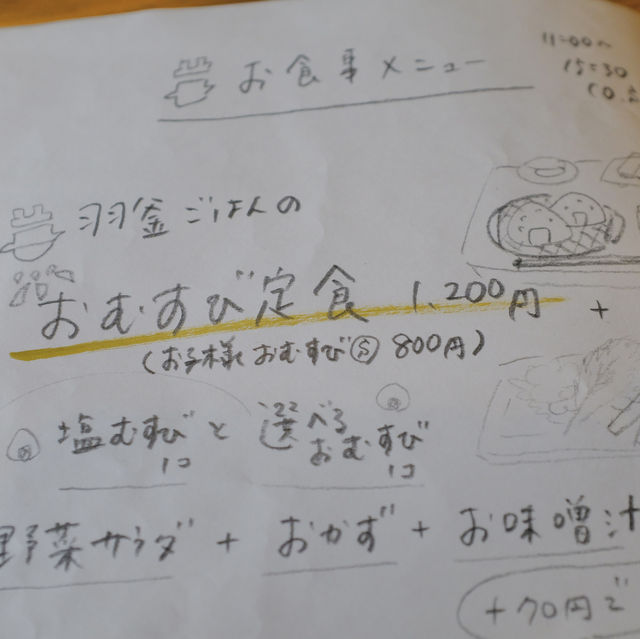 お食事メニュー
11:00〜
15:30
羽釜ごはんの
おむすび定食 1,200円 +
(お子様おむすび 800円)
塩むすび と 選べる
おむすび
1コ 1コ
野菜サラダ + おかず + お味噌汁
+70円で